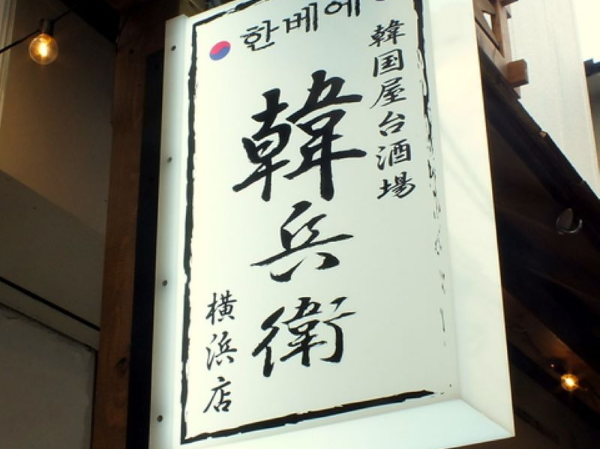 한베에
韓国屋台酒場
韓兵衛
横浜店